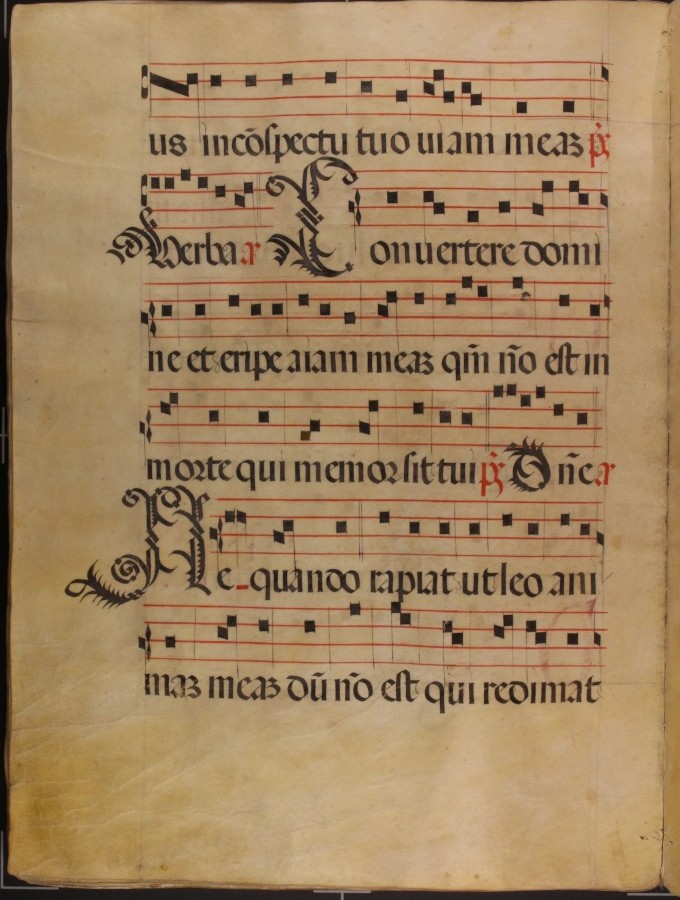 us inco̅spectu tuo uiam meaʒ p̅s
Verba a Conuertere domi
ne et eripe aiam meaʒ qm̅ no̅ est in
morte qui memor sit tui p̅s Dn̅e a
Ne quando rapiat ut leo ani
maʒ meaʒ du̅ no̅ est qui redimat